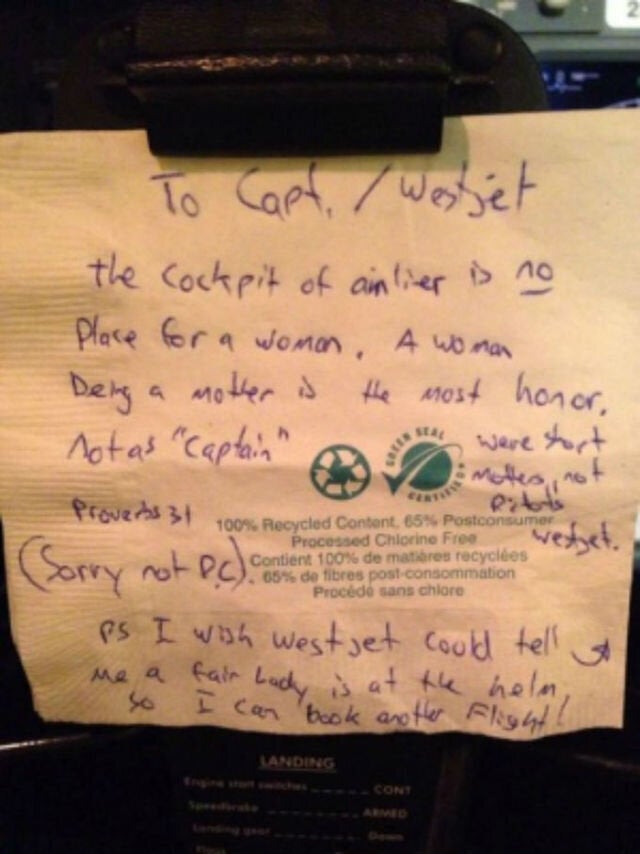 2
To Capt. / Westjet
the cockpit of airliner is no
Place for a woman. A woman
being a mother is the most honor.
Not as "Captain"
were short
mothers, not
pilots
westjet.
GREEN SEAL
CERTIFIED
Proverbs 31
100% Recycled Content, 65% Postconsumer
Processed Chlorine Free
Contient 100% de matières recyclées
65% de fibres post-consommation
Procédé sans chlore
(Sorry not P.C).
PS I wish westjet could tell
me a fair lady is at the helm
so I can book another Flight!
LANDING
Engine start switches ----- CONT
Speedbrake ----- ARMED
Landing gear ----- Down
Flaps